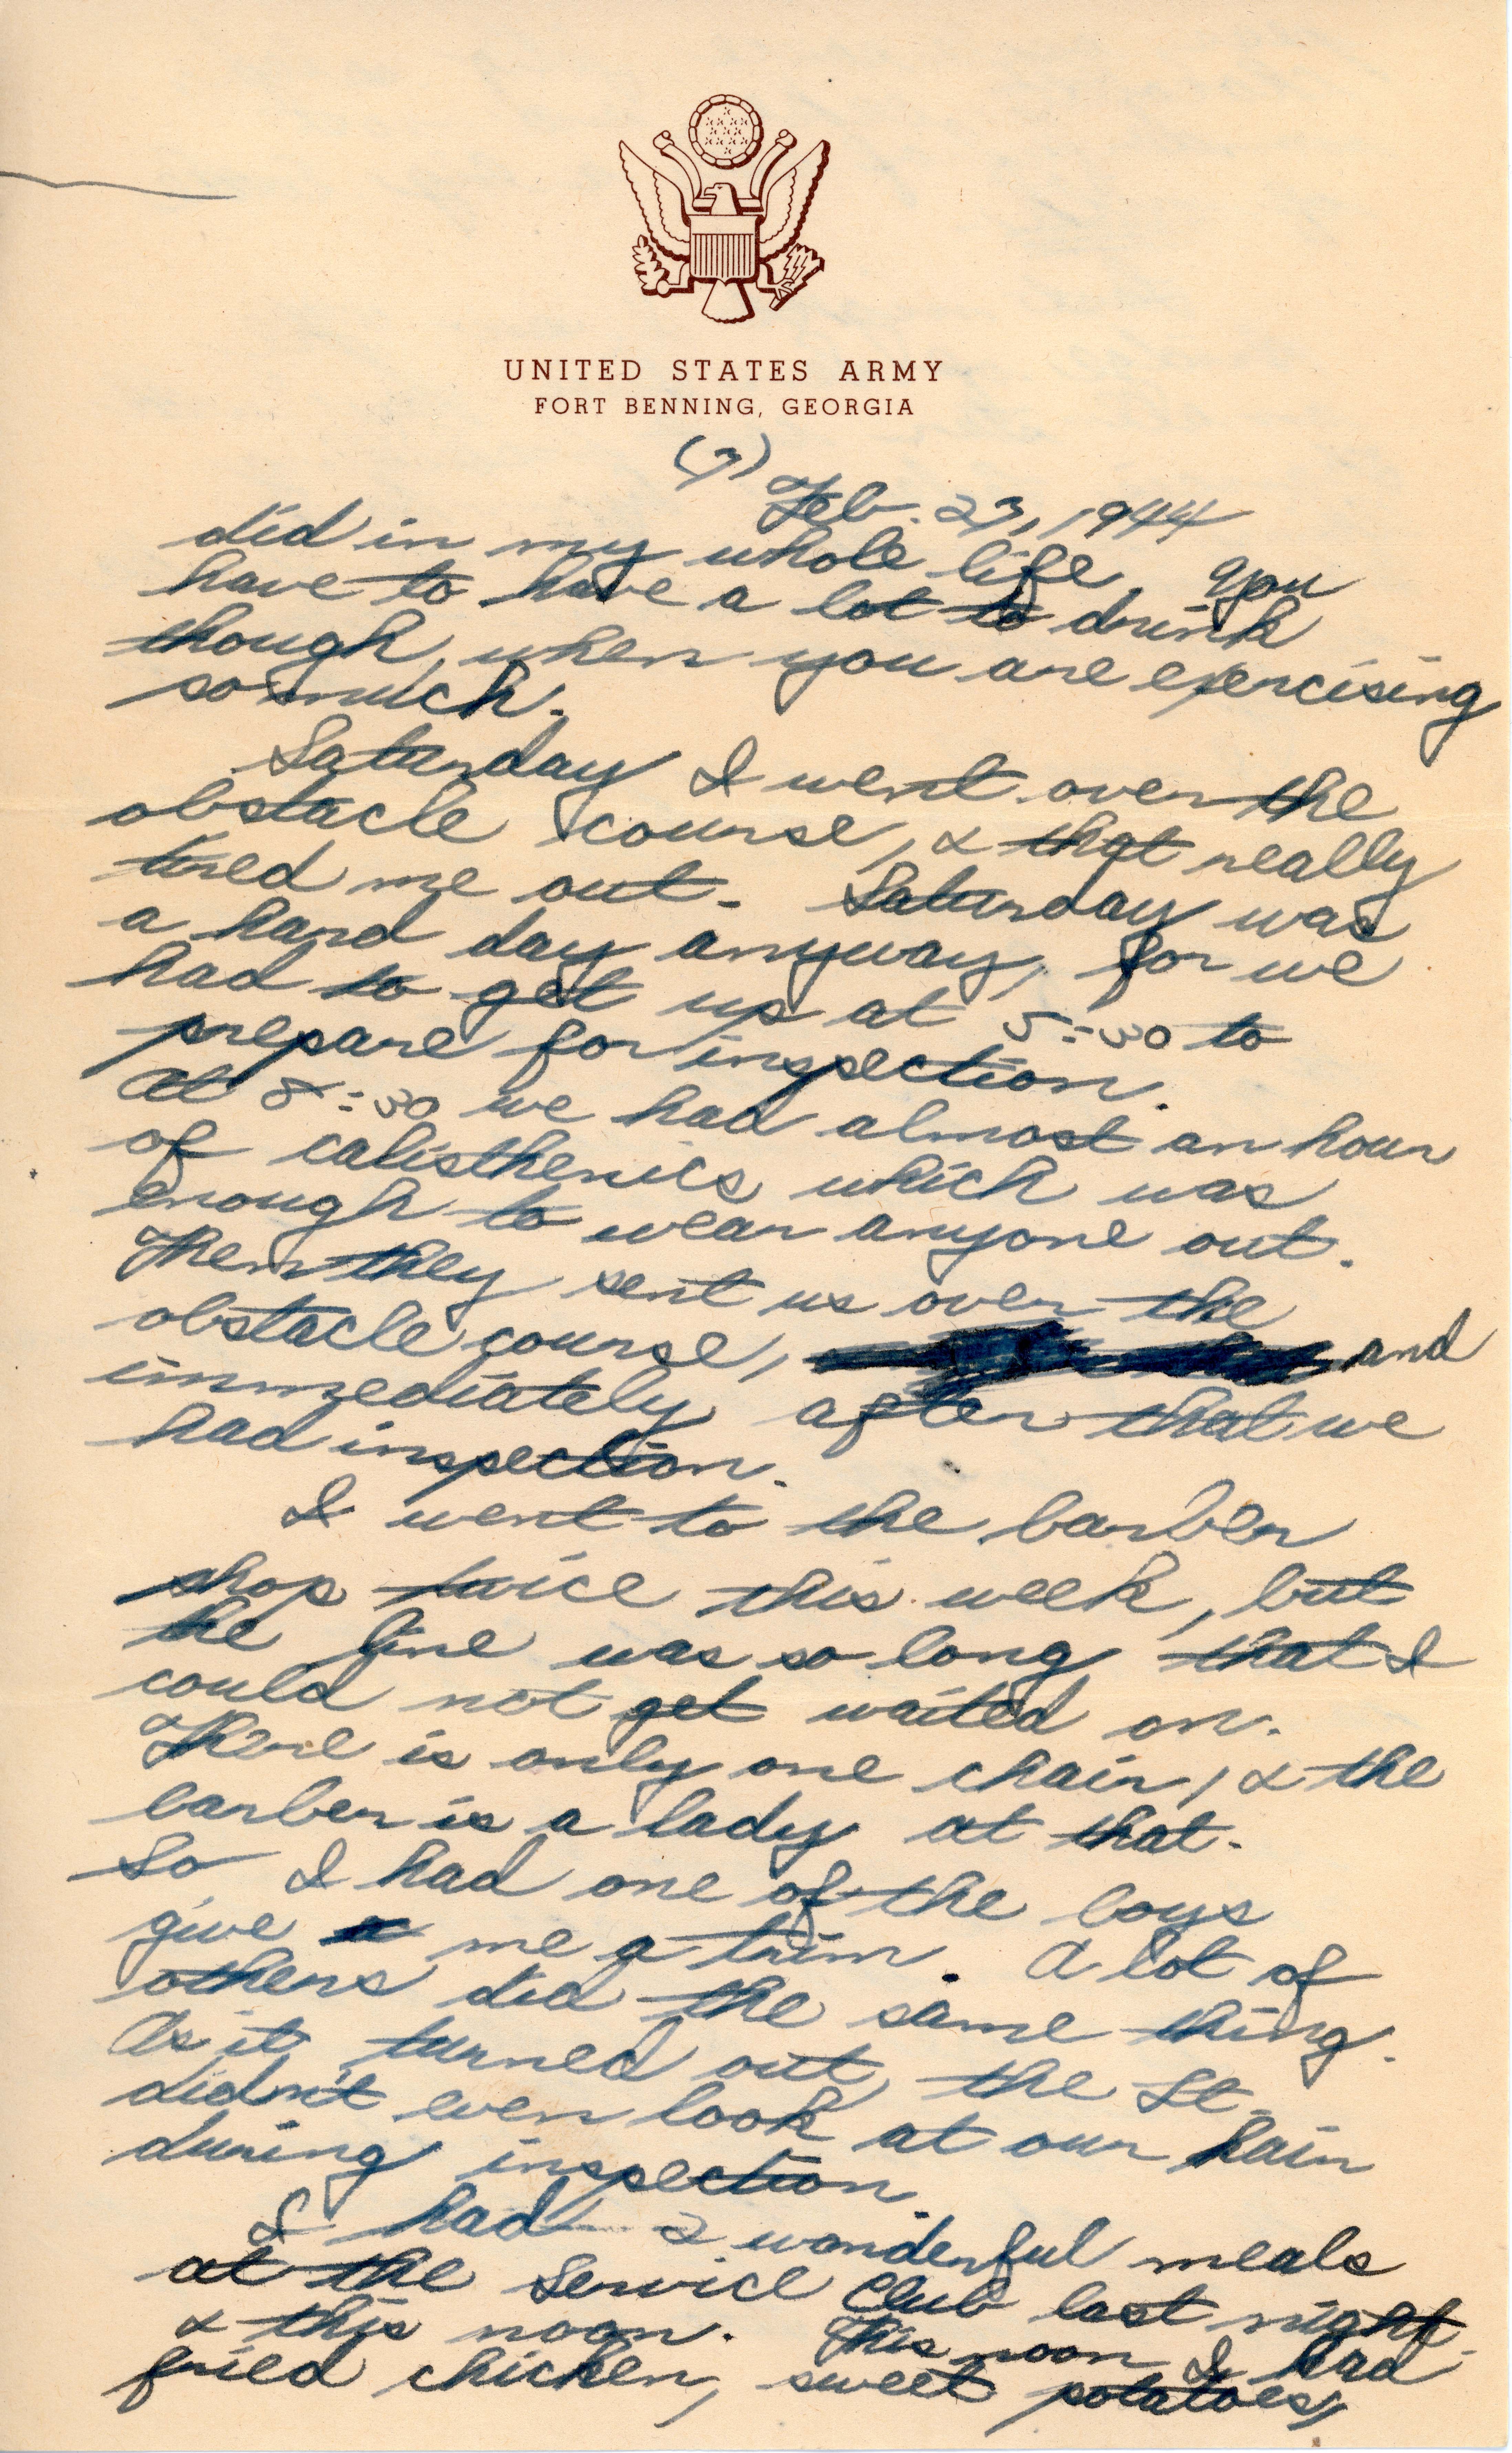 UNITED STATES ARMY
FORT BENNING, GEORGIA
(3)
Feb. 23, 1944
did in my whole life. You
have to have a lot to drink
though, when you are exercising
so much.
Saturday I went over the
obstacle course, & that really
tired me out. Saturday was
a hard day anyway, for we
had to get up at 5:30 to
prepare for inspection.
At 8:30 we had almost an hour
of calisthenics which was
enough to wear anyone out.
Then they sent us over the
obstacle course, and
immediately after that we
had inspection.
I went to the barber
shop twice this week, but
the line was so long that I
could not get waited on.
There is only one chair, & the
barber is a lady at that.
So I had one of the boys
give me a trim. A lot of
others did the same thing.
As it turned out, the Lt.
didn't even look at our hair
during inspection.
I had 2 wonderful meals
at the Service Club last night
& this noon. This noon I had
fried chicken, sweet potatoes,